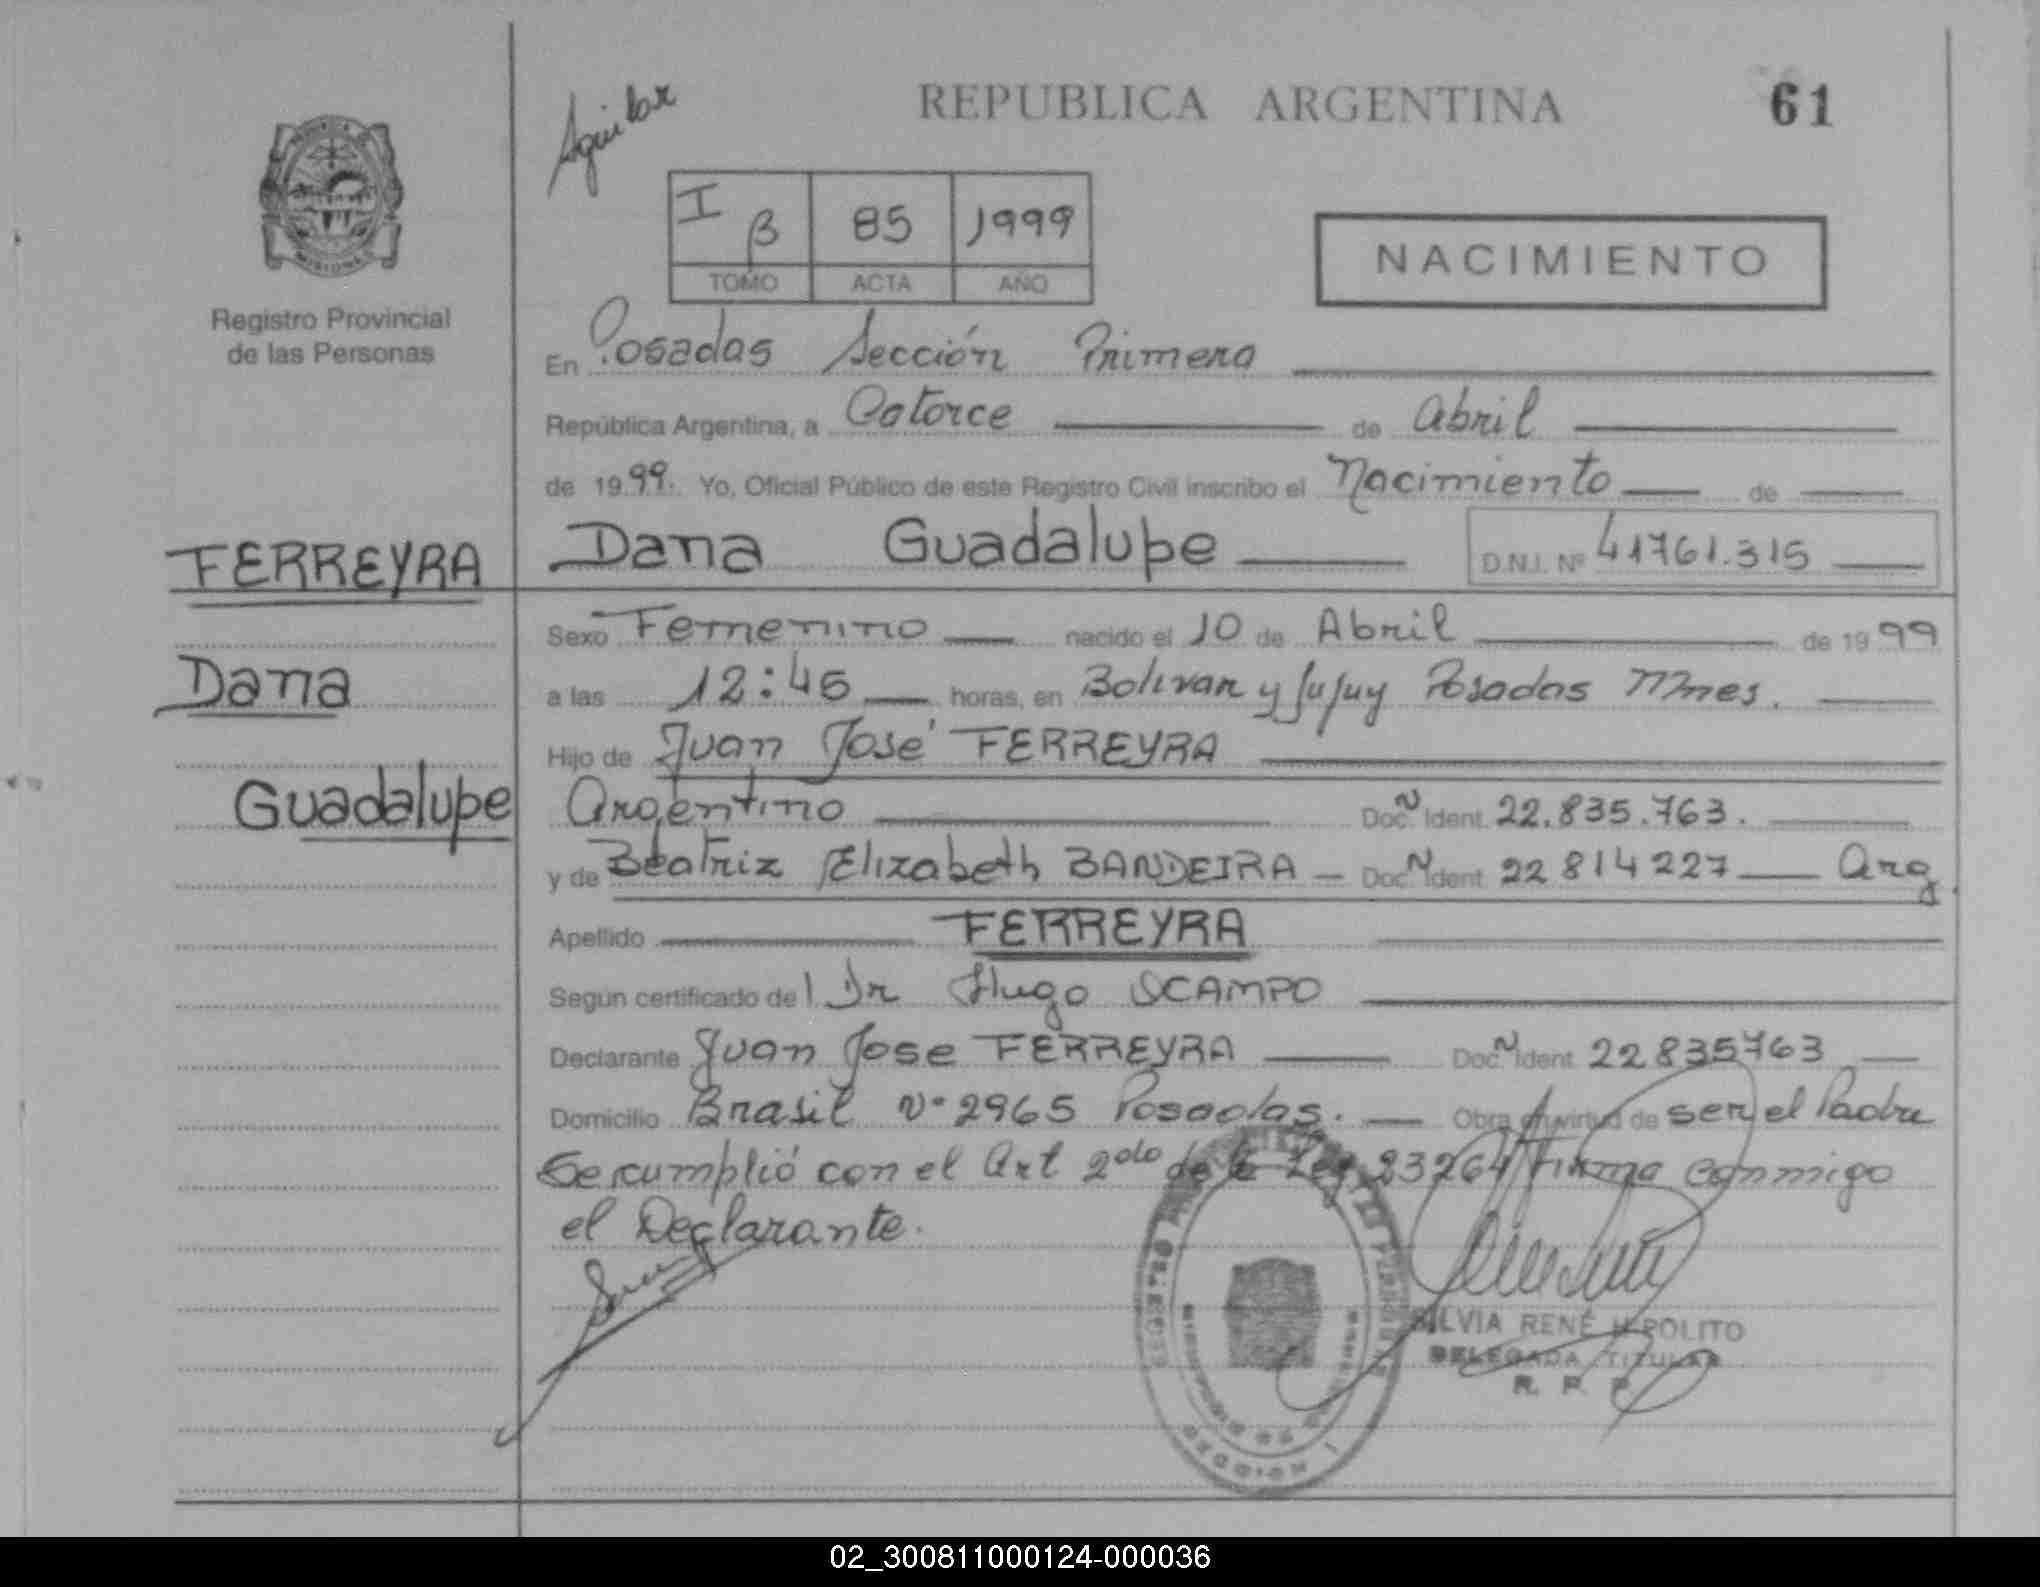 Aguilar
REPUBLICA ARGENTINA
61
I B 85 1999
TOMO ACTA AÑO
NACIMIENTO
MISIONES
Registro Provincial
de las Personas
En Posadas Sección Primera
República Argentina, a Catorce de Abril
de 1999. Yo, Oficial Público de este Registro Civil inscribo el Nacimiento de
FERREYRA
Dana Guadalupe D.N.I. Nº 41761.315
Sexo Femenino nacido el 10 de Abril de 1999
Dana
a las 12:45 horas, en Bolivar y Jujuy Posadas Mnes.
Hijo de Juan José FERREYRA
Guadalupe
Argentino Doc. N Ident. 22.835.763.
y de Beatriz Elizabeth BANDEIRA - Doc. N Ident. 22 814 227 Arg.
Apellido FERREYRA
Según certificado del Dr Hugo OCAMPO
Declarante Juan Jose FERREYRA Doc. N Ident. 22835763
Domicilio Brasil Nº 2965 Posadas. Obra en virtud de ser el Padre
Se cumplió con el Art 2do de la Ley 23264 Firma conmigo
el Declarante.
SILVIA RENÉ HIPOLITO
DELEGADA TITULAR
R. P. P.
02_300811000124-000036